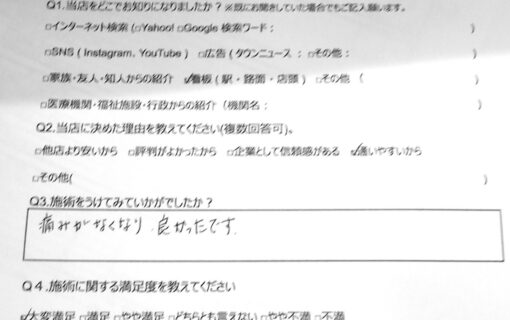 Q1.当店をどこでお知りになりましたか？※既にお聞きしていた場合でもご記入願います。
□インターネット検索 (□Yahoo! □Google 検索ワード： )
□SNS ( Instagram、YouTube ) □広告 ( タウンニュース ： □その他： )
□家族・友人・知人からの紹介 ☑看板 ( 駅・路面・店頭 ) □その他 ( )
□医療機関・福祉施設・行政からの紹介 (機関名： )
Q2.当店に決めた理由を教えてください(複数回答可)。
□他店より安いから □評判がよかったから □企業として信頼感がある ☑通いやすいから
□その他( )
Q3.施術をうけてみていかがでしたか？
痛みがなくなり 良かったです.
Q４.施術に関する満足度を教えてください
☑大変満足 □満足 □やや満足 □どちらとも言えない □やや不満 □不満